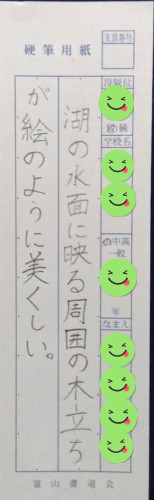 支部番号
硬筆用紙
段級位
級
学校名
小中高
一般
年
なまえ
湖の水面に映る周囲の木立ち
が絵のように美くしい。
富山書道会